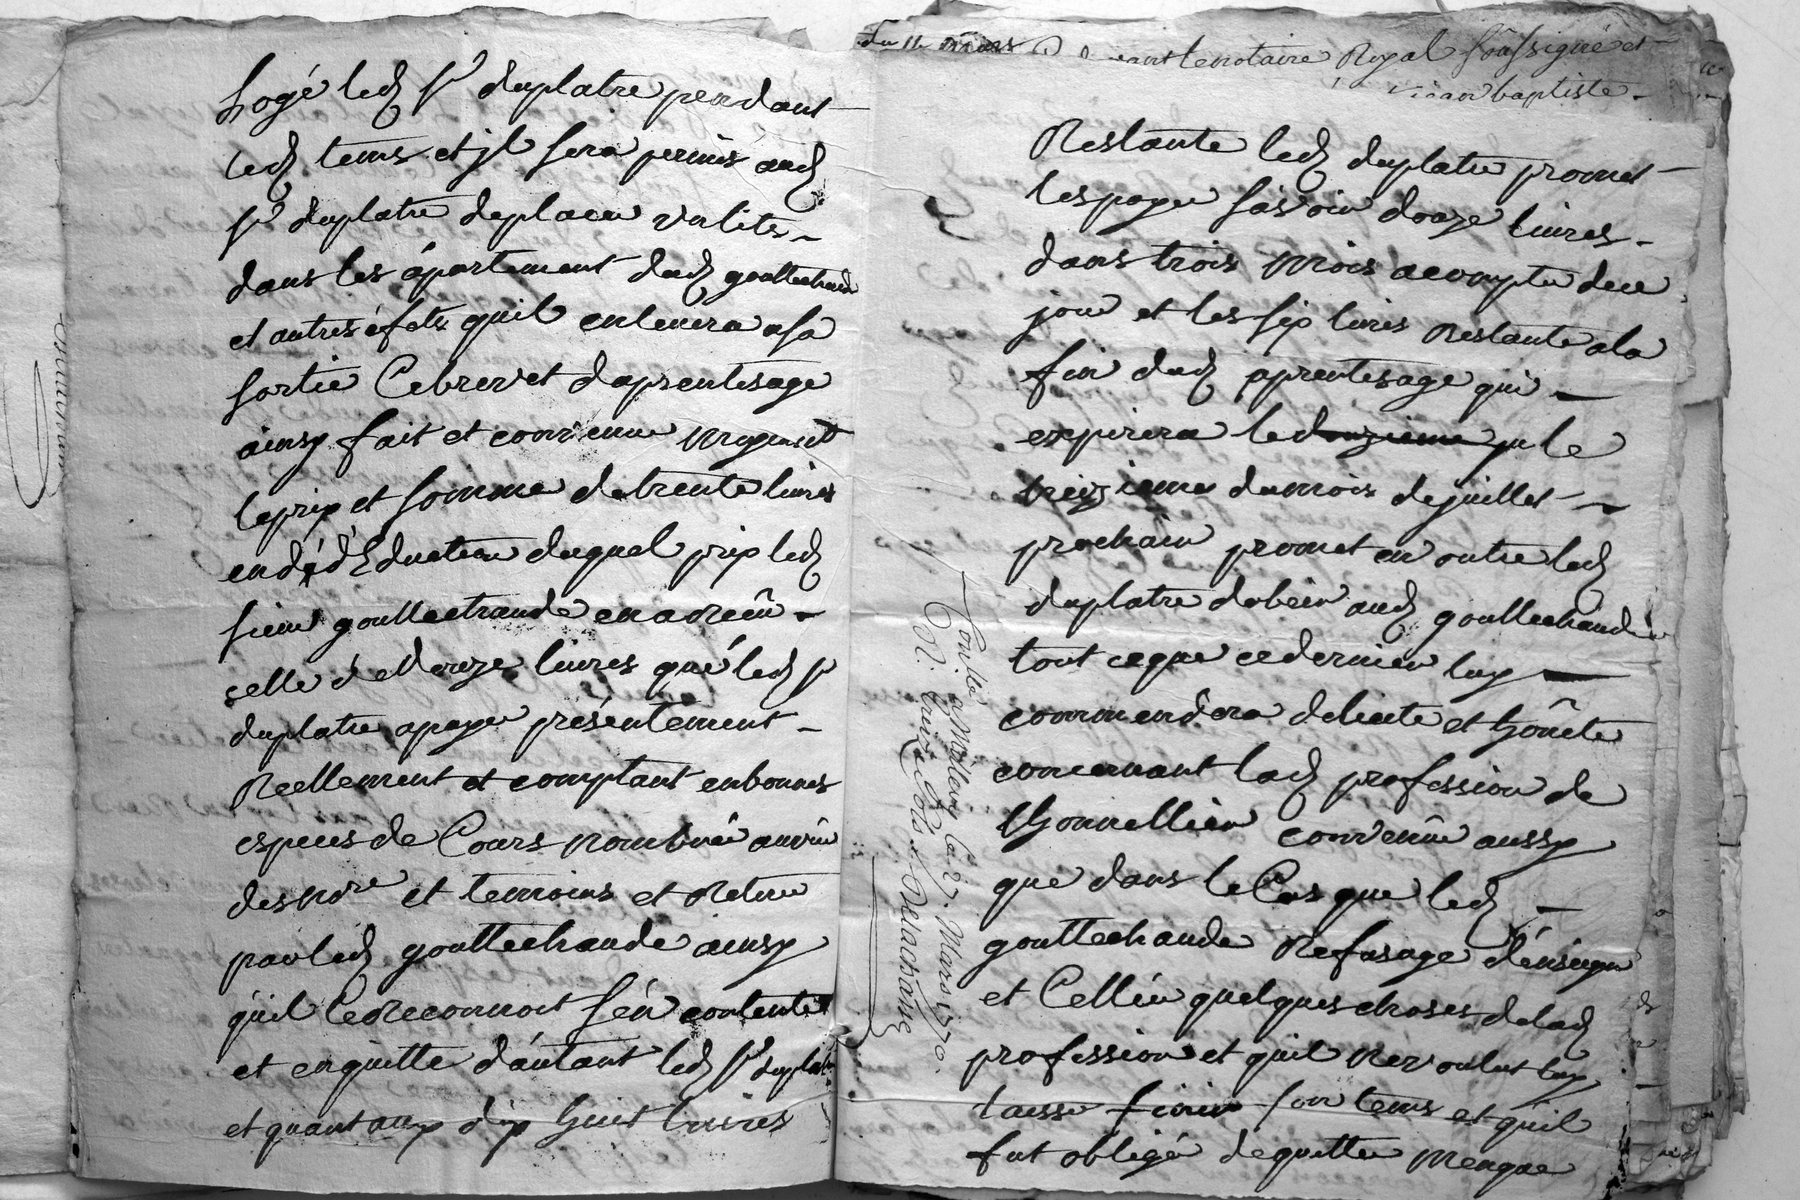 Logé led. Sr duplatre pendant
led. tems et jl sera permis aud.
Sr duplatre de placer un lits
dans les ápartement dud. gouttechaude
et autres éfets quil enlevera a sa
sortie Ce brevet daprentisage
ainsy fait et convenu moyenant
le prix et somme de trente livres
duquel prix led.
sieur gouttechaude en a recû
celle de Douze livres qué led. Sr
duplatre a payé présentement
Réellement et comptant en bonnes
especes de Cours nombré au vû
des nore et temoins et Retiré
par led. gouttechaude ainsy
quil le reconnoit sén contente
et en quitte dáutant led. Sr duplatre
et quant aux dix huit livres
du 11 mars
notaire Royal soussigné et
baptiste
Restante led. duplatre promet
les payer sàvoir douze livres
dans trois mois a compter de ce
jour et les six livres Restante a la
fin dud. aprentisage qui
expirira le douzieme le
treizieme du mois de juillet
prochain promet en outre led.
duplatre dobéir aud. gouttechaude
tout ce que ce dernier luy
commendera de licite et hônete
concernant lad. profession de
convenû aussy
que dans le Cas que led.
gouttechaude Refusage dénseigner
et Celler quelques choses de lad.
profession et quil ne voulut luy
laisser finir son tems et quil
fut obligé de quitter
Con.lé a la 27. Mars 1770.
R. treize sols Delachaise